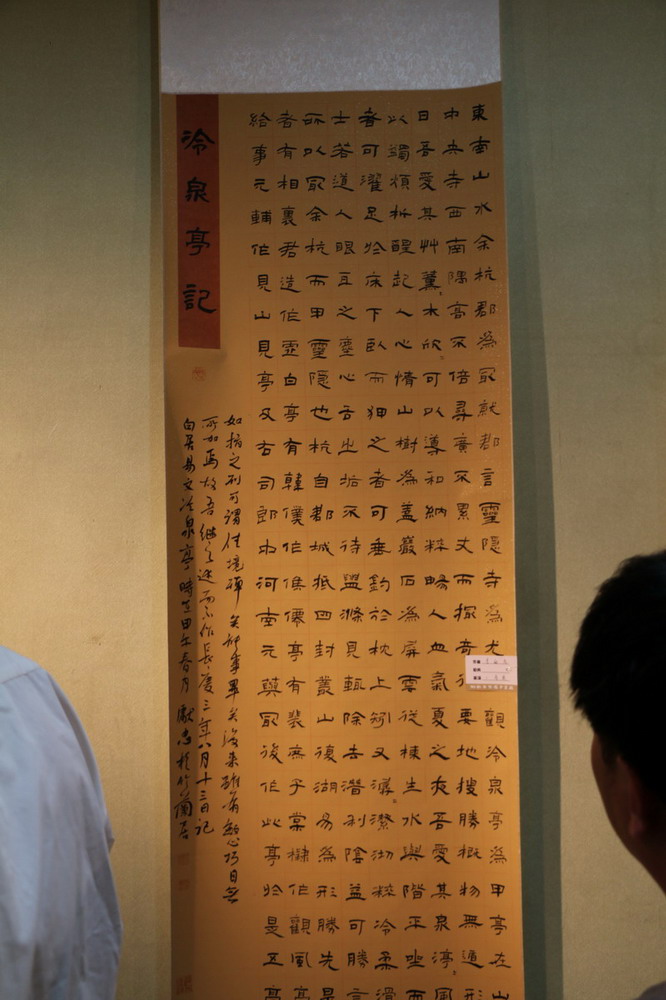 東南山水余杭郡為冣就郡言靈隱寺為尤觀冷泉亭為甲亭在山
中央寺西南隅高不倍尋廣不累丈而撮奇要地搜勝概物無遁形
日吾愛其艸薰木欣可以導和納粹暢人血氣夏之夜吾愛其泉渟風
以蠲煩析酲起人心情山樹為蓋巖石為屏雲從棟生水與階平坐而
者可濯足於床下臥而狎之者可垂釣於枕上矧又潺潔沏粹冷柔滑
士若道人眼耳之塵心舌之垢不待盥滌見輒除去潛利陰益可勝言
所以冣余杭而甲靈隱也杭自郡城抵四封叢山復湖易為形勝先是
者有相裏君造作虛白亭有韓僕作候僊亭有裴庶子棠棣作觀風亭
給事元輔作見山亭及右司郎中河南元藇冣後作此亭於是五亭
如指之列可謂佳境殫矣能事畢矣後來雖有敏心巧目無
所加焉故吾繼之述而不作長慶三年八月十三日記
白居易文冷泉亭時在甲午春月獻忠於竹蘭居
冷泉亭記